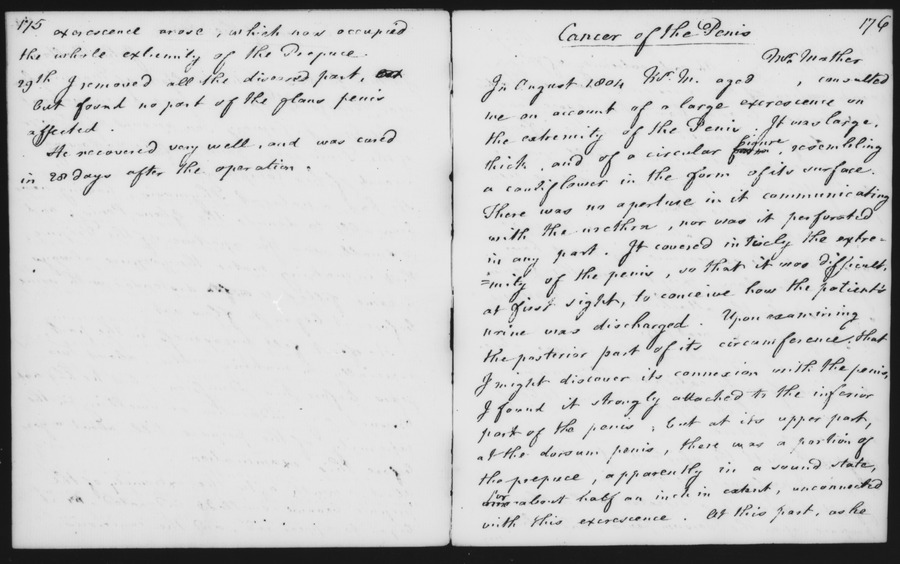 175
excrescence arose, which now occupied
the whole extremity of the Prepuce.
29th I removed all the diseased part,
but found no part of the glans penis
affected.
He recovered very well, and was cured
in 28 days after the operation.
176
Cancer of the Penis
Mr. Mather
In August 1804 Mr. M. aged , consulted
me on account of a large excrescence on
the extremity of the Penis. It was large,
thick, and of a circular figure, resembling
a cauliflower in the form of its surface.
There was no aperture in it communicating
with the urethra, nor was it perforated
in any part. It covered intirely the extre=
=mity of the penis, so that it was difficult,
at first sight, to conceive how the patient's
urine was discharged. Upon examining
the posterior part of its circumference, that
I might discover its connexion with the penis,
I found it strongly attached to the inferior
part of the penis; but at its upper part,
at the dorsum penis, there was a portion of
the prepuce, apparently in a sound state,
for about half an inch in extent, unconnected
with this excrescence. At this part, as he